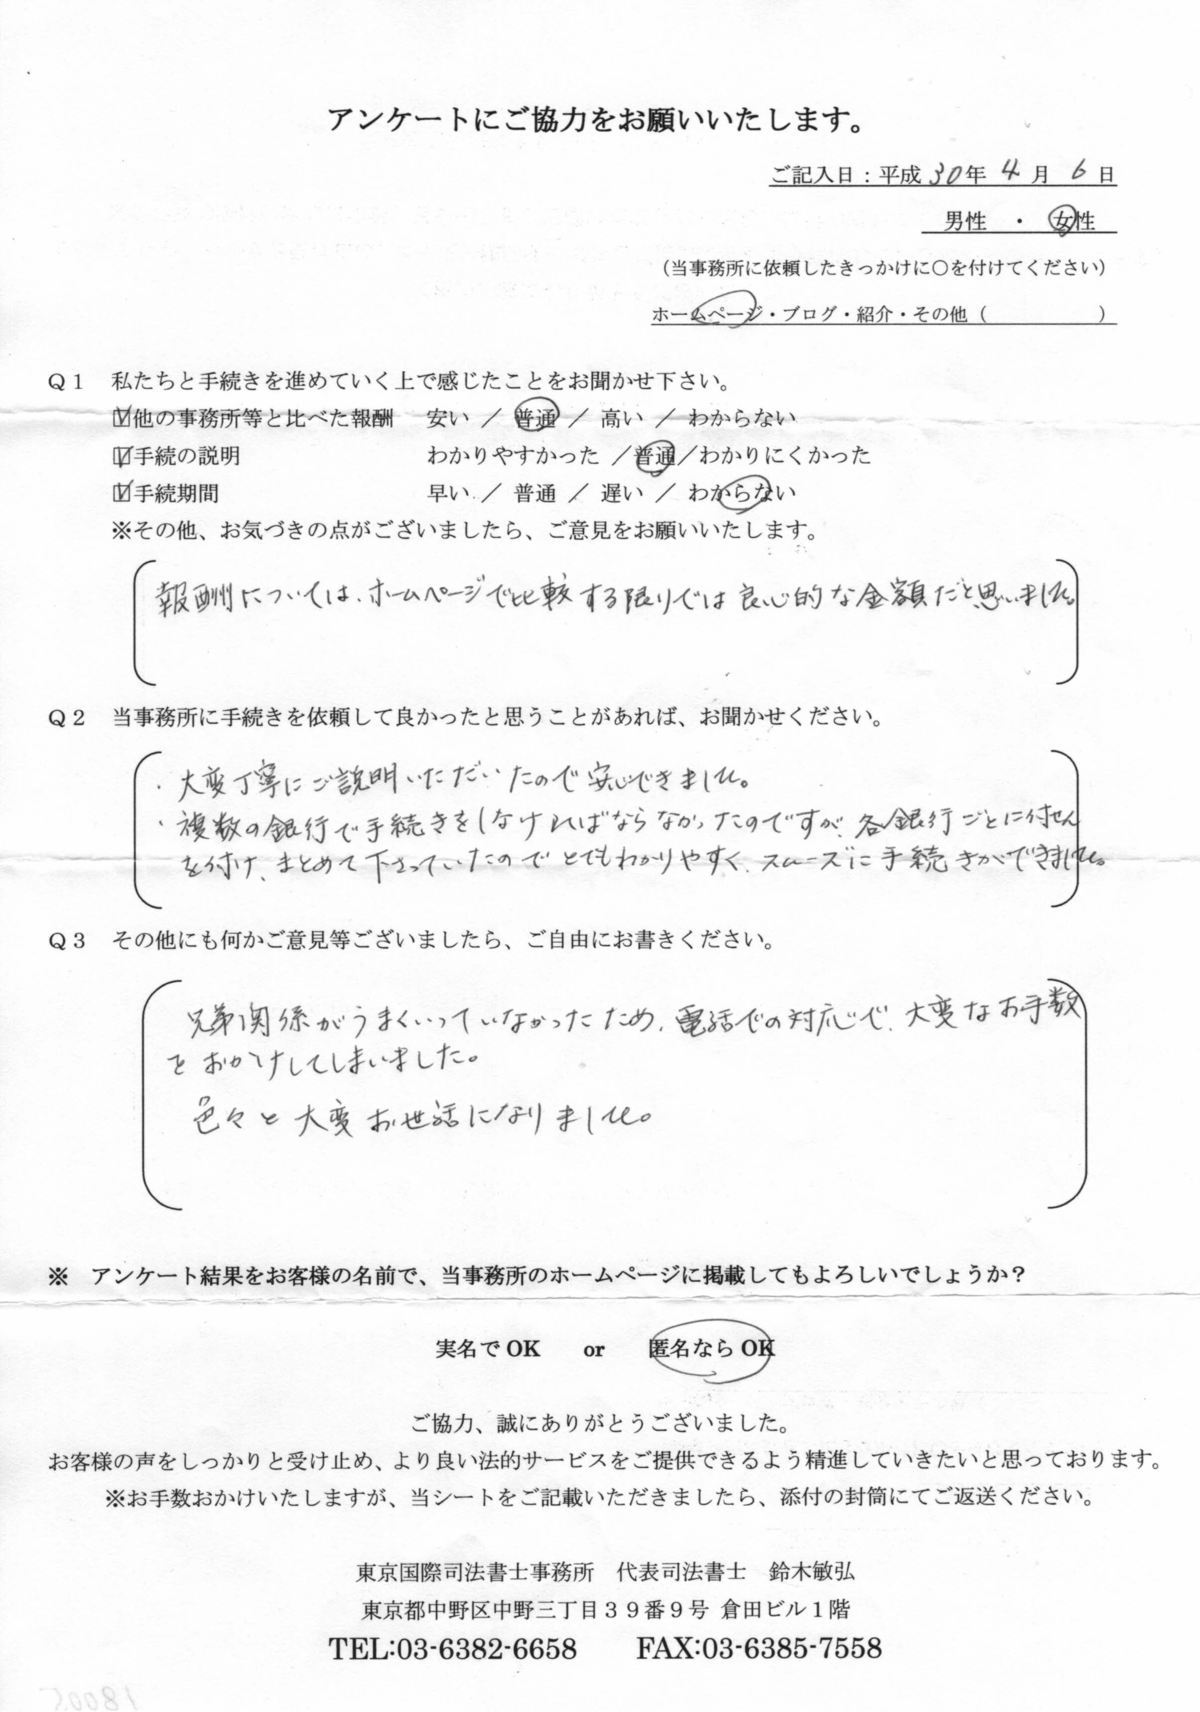 アンケートにご協力をお願いいたします。
ご記入日：平成 30年 4 月 6 日
男性 ・ 女性
（当事務所に依頼したきっかけに○を付けてください）
ホームページ・ブログ・紹介・その他（　　　　　）
Ｑ１　私たちと手続きを進めていく上で感じたことをお聞かせ下さい。
☑他の事務所等と比べた報酬　安い ／ 普通 ／ 高い ／ わからない
☑手続の説明　わかりやすかった ／普通／わかりにくかった
☑手続期間　早い ／ 普通 ／ 遅い ／ わからない
※その他、お気づきの点がございましたら、ご意見をお願いいたします。
報酬については、ホームページで比較する限りでは良心的な金額だと思いました。
Ｑ２　当事務所に手続きを依頼して良かったと思うことがあれば、お聞かせください。
・大変丁寧にご説明いただいたので安心できました。
・複数の銀行で手続きをしなければならなかったのですが、各銀行ごとに付せん
を付け、まとめて下さっていたのでとてもわかりやすく、スムーズに手続きができました。
Ｑ３　その他にも何かご意見等ございましたら、ご自由にお書きください。
兄弟関係がうまくいっていなかったため、電話での対応で、大変なお手数
をおかけしてしまいました。
色々と大変お世話になりました。
※　アンケート結果をお客様の名前で、当事務所のホームページに掲載してもよろしいでしょうか？
実名で OK　or　匿名なら OK
ご協力、誠にありがとうございました。
お客様の声をしっかりと受け止め、より良い法的サービスをご提供できるよう精進していきたいと思っております。
※お手数おかけいたしますが、当シートをご記載いただきましたら、添付の封筒にてご返送ください。
東京国際司法書士事務所　代表司法書士　鈴木敏弘
東京都中野区中野三丁目３９番９号 倉田ビル１階
TEL:03-6382-6658　FAX:03-6385-7558